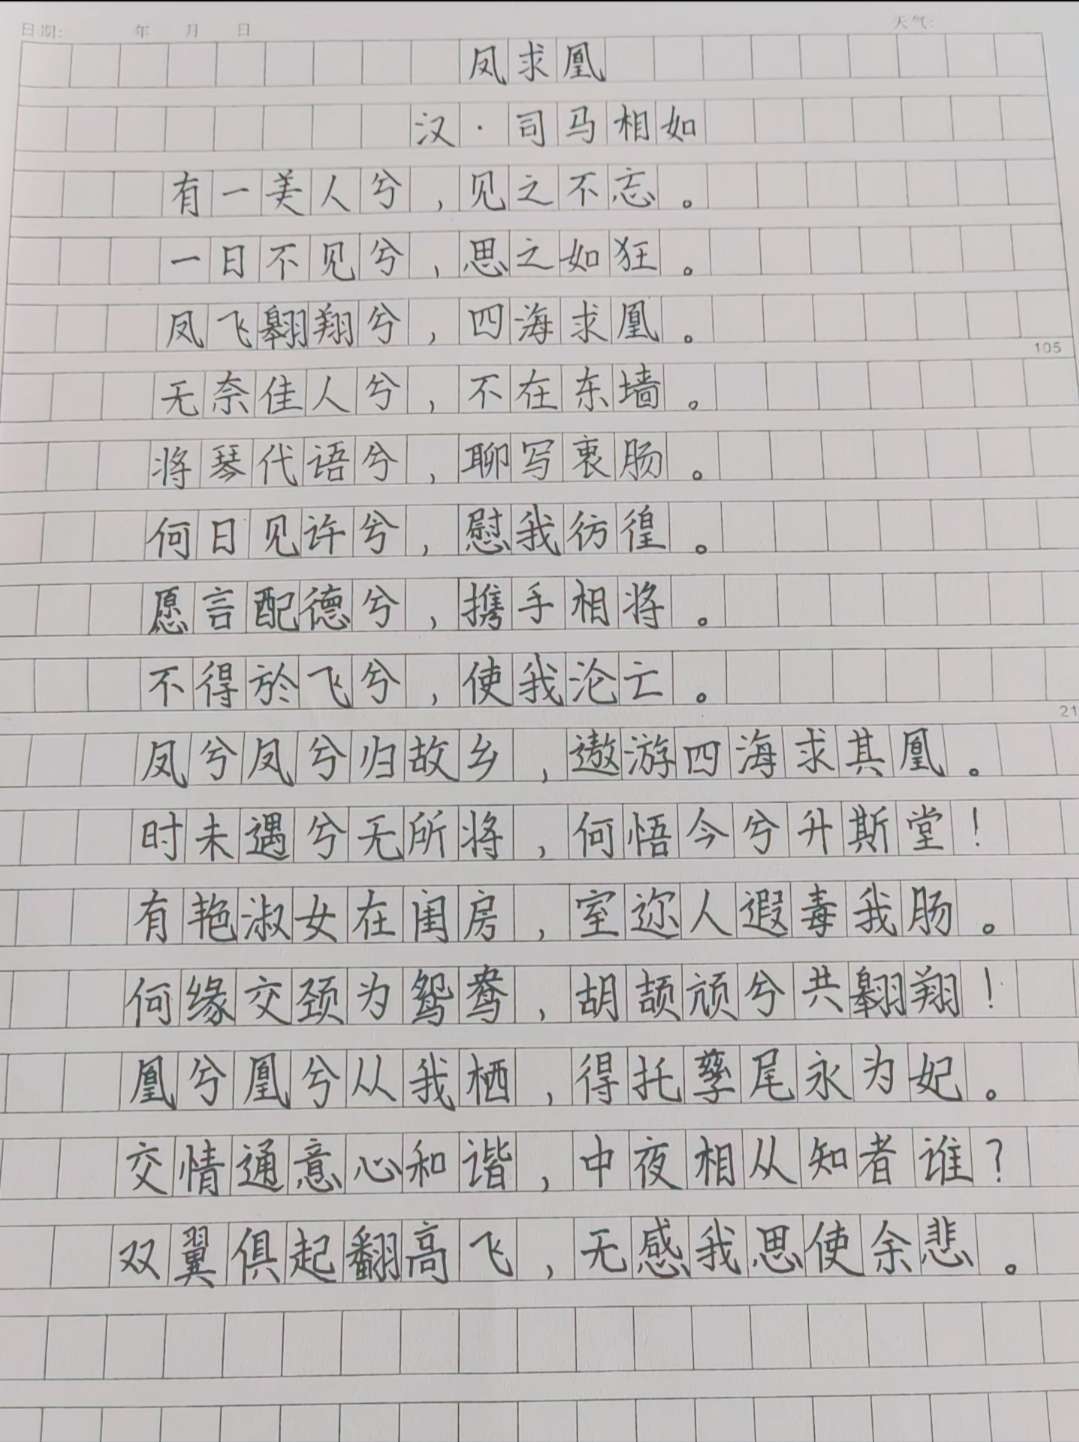 日期: 年 月 日 天气:
凤求凰
汉·司马相如
有一美人兮，见之不忘。
一日不见兮，思之如狂。
凤飞翱翔兮，四海求凰。
105
无奈佳人兮，不在东墙。
将琴代语兮，聊写衷肠。
何日见许兮，慰我彷徨。
愿言配德兮，携手相将。
不得於飞兮，使我沦亡。
21
凤兮凤兮归故乡，遨游四海求其凰。
时未遇兮无所将，何悟今兮升斯堂！
有艳淑女在闺房，室迩人遐毒我肠。
何缘交颈为鸳鸯，胡颉颃兮共翱翔！
凰兮凰兮从我栖，得托孳尾永为妃。
交情通意心和谐，中夜相从知者谁？
双翼俱起翻高飞，无感我思使余悲。